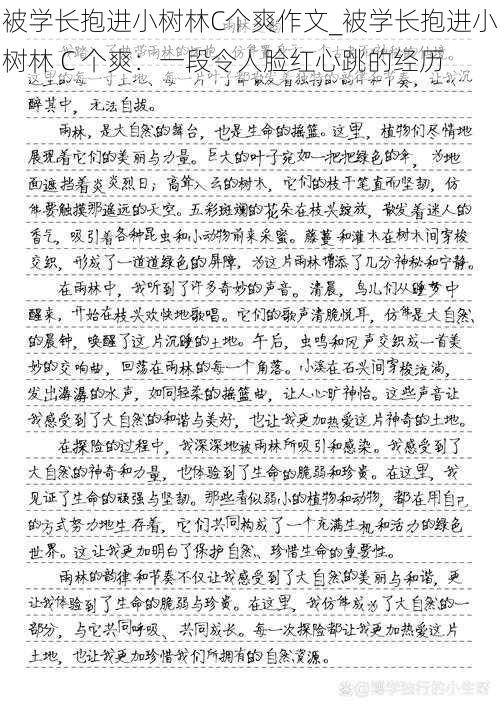 被学长抱进小树林C个爽作文_被学长抱进小
树林 C 个爽：一段令人脸红心跳的经历
这里的每一寸土地、每一片叶子都散发着独特的韵律和节奏，让我沉
醉其中，无法自拔。
雨林，是大自然的舞台，也是生命的摇篮。这里，植物们尽情地
展现着它们的美丽与力量。巨大的叶子宛如一把把绿色的伞，为地
面遮挡着炎炎烈日；高耸入云的树木，它们的枝干笔直而坚韧，仿
佛要触摸那遥远的天空。五彩斑斓的花朵在枝头绽放，散发着迷人的
香气，吸引着各种昆虫和小动物前来采蜜。藤蔓和灌木在树木间穿梭
交织，形成了一道道绿色的屏障，为这片雨林增添了几分神秘和宁静。
在雨林中，我听到了许多奇妙的声音。清晨，鸟儿们从睡梦中
醒来，开始在枝头欢快地歌唱。它们的歌声清脆悦耳，仿佛是大自然
的晨钟，唤醒了这片沉睡的土地。午后，虫鸣和风声交织成一首美
妙的交响曲，回荡在雨林的每一个角落。小溪在石头间穿梭流淌，
发出潺潺的水声，如同轻柔的摇篮曲，让人心旷神怡。这些声音让
我感受到了大自然的和谐与美好，也让我更加热爱这片神奇的土地。
在探险的过程中，我深深地被雨林所吸引和感染。我感受到了
大自然的神奇和力量，也体验到了生命的脆弱和珍贵。在这里，我
见证了生命的顽强与坚韧。那些看似弱小的植物和动物，都在用自己
的方式努力地生存着，它们共同构成了一个充满生机和活力的绿色
世界。这让我更加明白了保护自然、珍惜生命的重要性。
雨林的韵律和节奏不仅让我感受到了大自然的美丽与和谐，更
让我体验到了生命的脆弱与珍贵。在这里，我仿佛成为了大自然的一
部分，与它共同呼吸、共同成长。每一次探险都让我更加热爱这片
土地，也让我更加珍惜我们所拥有的自然资源。
@博学独行的小生呀